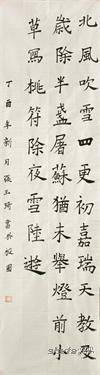 北風吹雪四更初嘉瑞天教及
歲除半盞屠蘇猶未舉燈前小
草寫桃符除夜雪陸遊
丁酉年新月張玉琦書於園